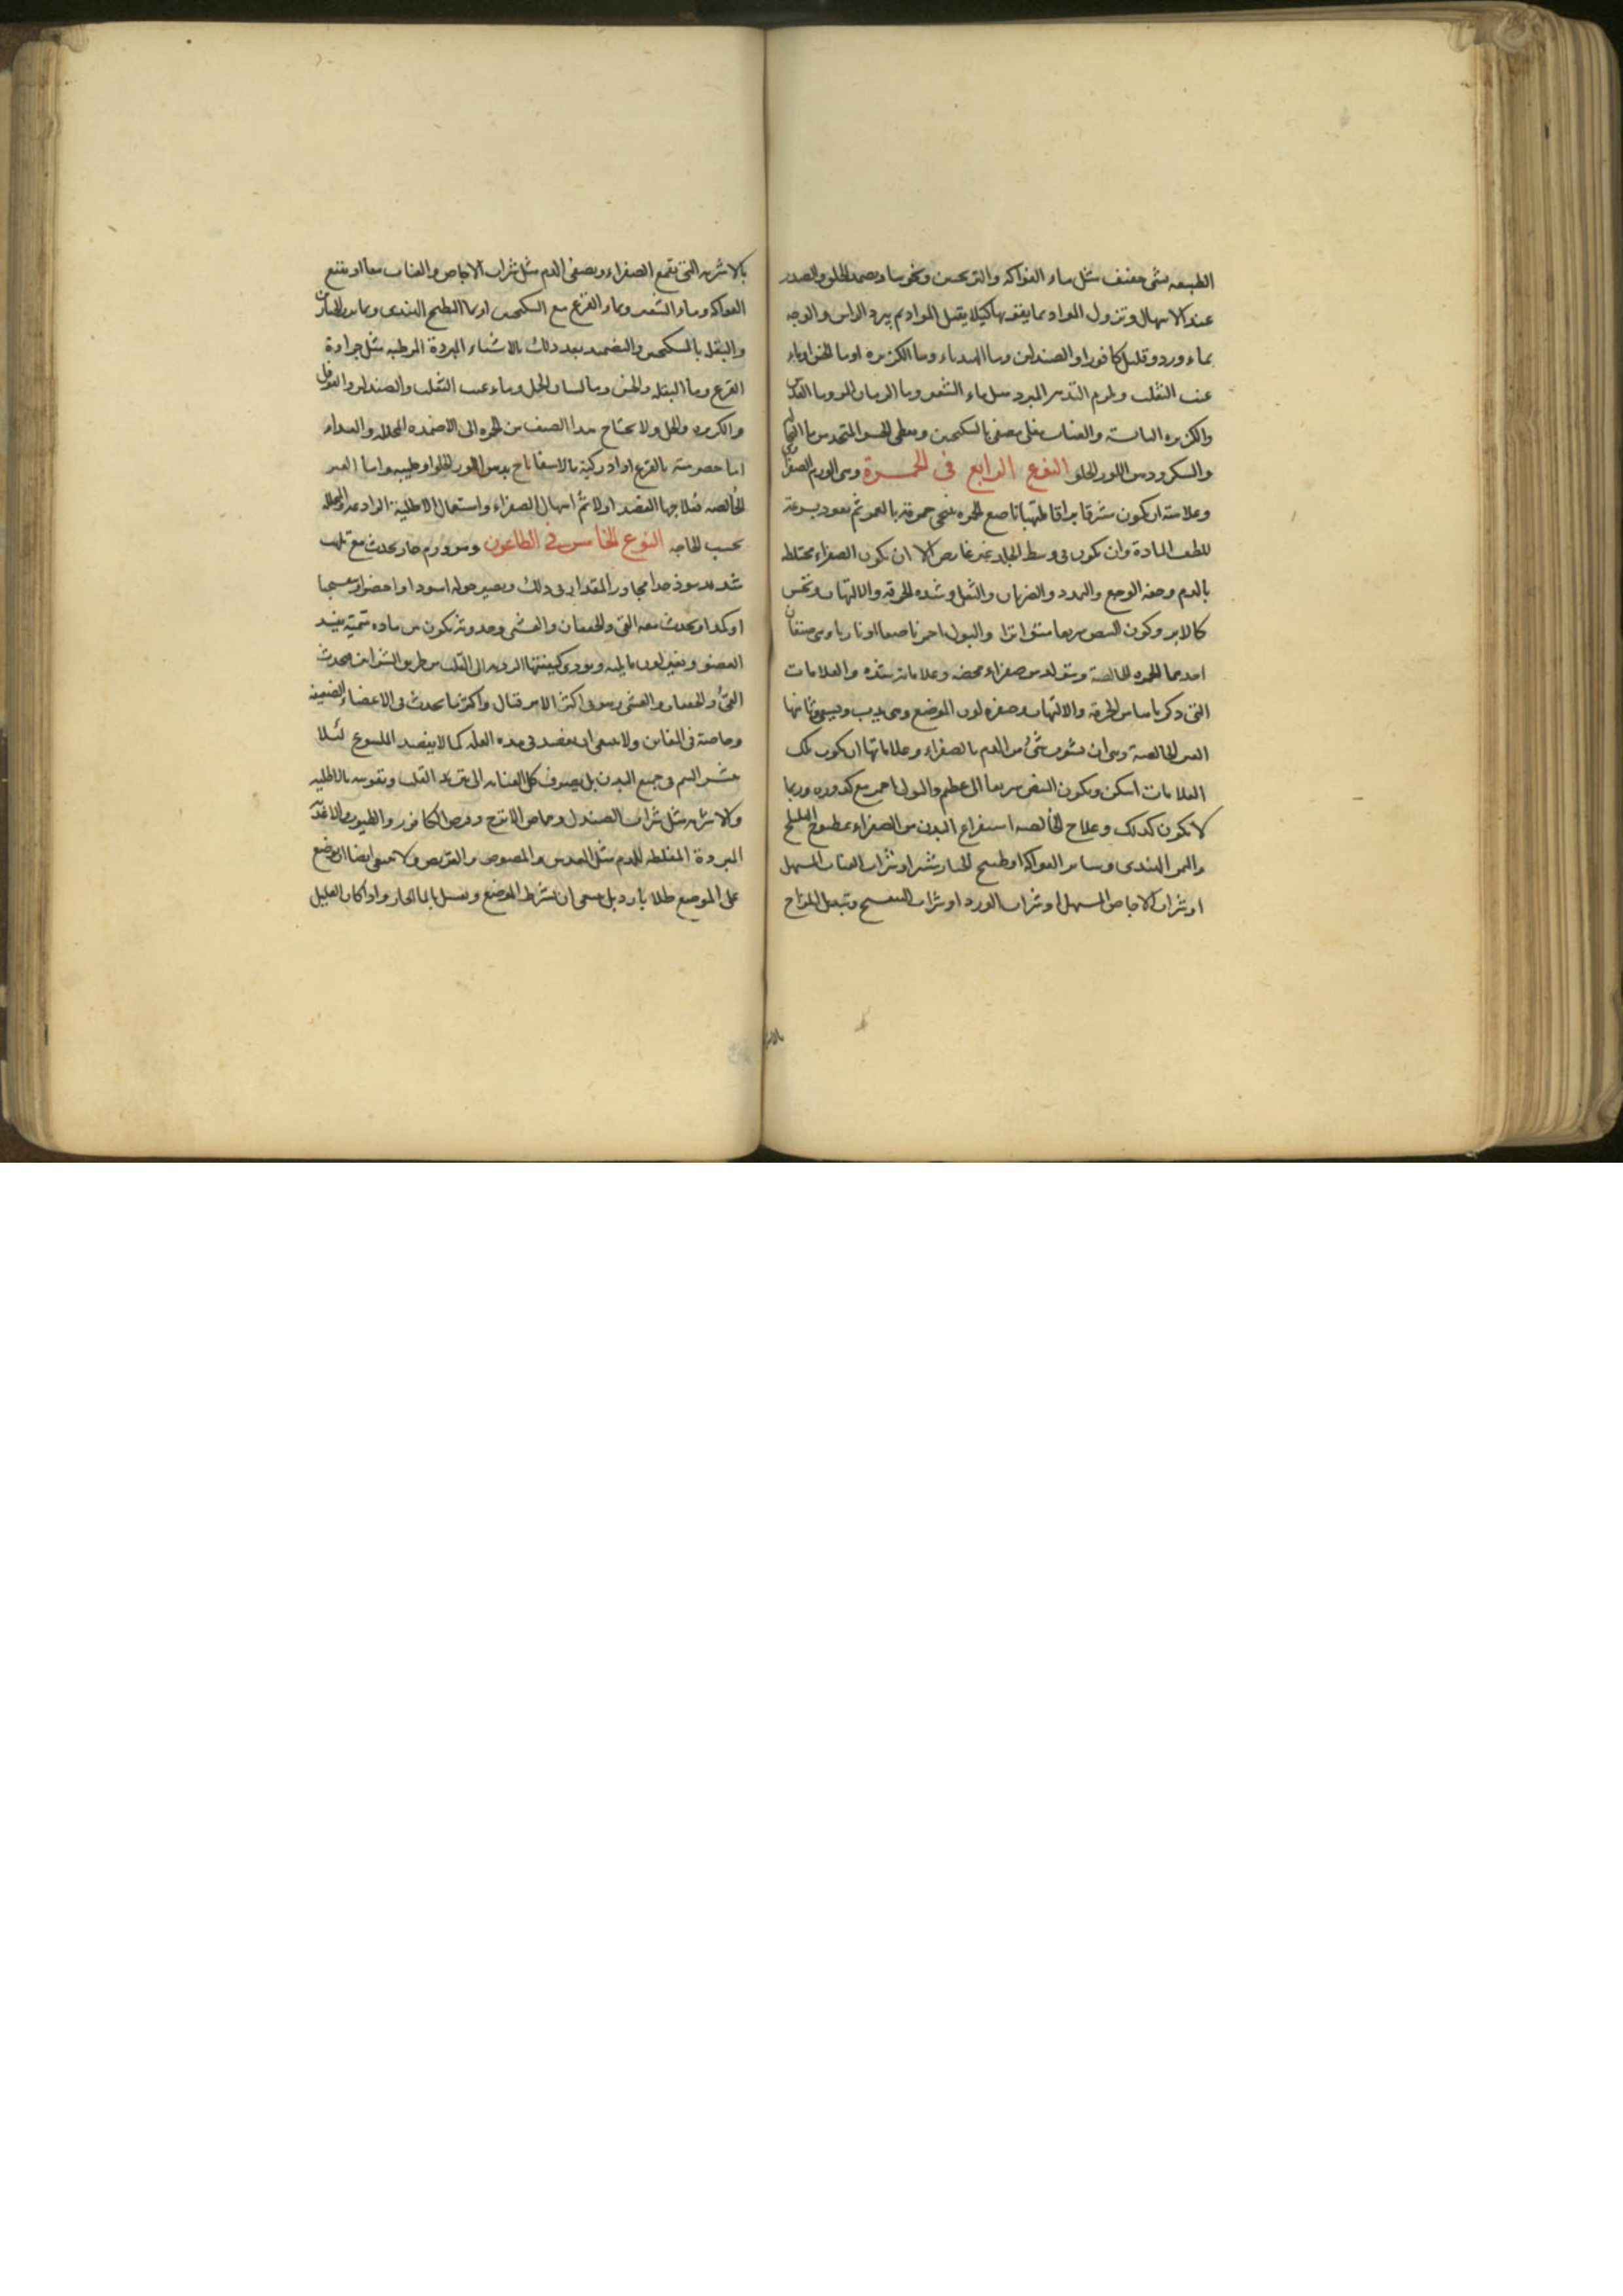 الطبيعه بشى خفيف مثل ماء الفواكه والترنجبين ونحوها ويضمد الحلق والصدر
عند الاسهال ونزول المواد بما يقويها كيلا يقبل المواد ثم يبرد الراس والوجه
بماء ورد وقليل كافور او الصندلين وماء الهندباء وماء الكزبره او ماء الخس او ماء
عنب الثعلب ويلزم التدبير المبرد مثل ماء الشعير وماء الرمان المز وماء القرع
والكزبره اليابسة والعناب مغلى مصفى بالسكنجبين ويعطى الحسو المتخذ من ماء النخالة
والسكر ودهن اللوز الحلو النوع الرابع فى الحمرة وهى الورم الصفراوى
وعلامته ان يكون مشرقا براقا ملتهبا ناصع الحمره تنحى حمرته بالغمز ثم تعود بسرعة
للطف المادة وان يكون فى وسط الجلد غير غايص الا ان يكون الصفراء مختلطه
بالدم وخفه الوجع والتمدد والضربان والثقل وشده الحرقه والالتهاب ونخس
كالابر وكون النبض سريعا متواترا والبول احمر ناصعا او ناريا وهى صنفان
احدهما الحمره الخالصة وتتولد من صفراء محضه وعلاماته شده والعلامات
التى ذكرناها من الحرقه والالتهاب وصفره لون الموضع وهى تدب وتسعى وثانيها
الغير الخالصة وهى ان يشوب شئ من الدم بالصفراء وعلاماتها ان يكون تلك
العلامات اسكن ويكون النبض سريعا الى عظم والبول احمر مع كدوره وربما
لا يكون كذلك وعلاج الخالصه استفراغ البدن من الصفراء بمطبوخ الهليلج
والتمر الهندى وساير الفواكه او طبيخ الخيارشنبر او شراب العناب المسهل
او شراب الاجاص المسهل او شراب الورد او شراب البنفسج وتبديل المزاج
بالاشر
بالاشربه التى تقمع الصفراء ويصفى الدم مثل شراب الاجاص والعناب معا او بنقيع
الفواكه وماء الشعير وماء القرع مع السكنجبين او ماء البطيخ الهندى وماء الخيار
والبقل بالسكنجبين والتضميد بعد ذلك بالاشياء المبردة المرطبه مثل جرادة
القرع وماء البقله والخس وماء لسان الحمل وماء عنب الثعلب والصندلين والفوفل
والكزبره والخل ولا يحتاج هذا الصنف من الحمره الى الاضمده المحلله والغذاء
اما حصرميته بالقرع او اذركية بالاسفاناخ بدهن اللوز الحلو او طيبه واما الغير
الخالصه فعلاجها الفصد اولا ثم اسهال الصفراء واستعمال الاطلية الرادعه والمحلله
بحسب الحاجه النوع الخامس فى الطاعون وهو ورم حار يحدث مع تلهب
شديد موذ جدا مجاوز المقدار فى ذلك ويصير حوله اسود او اخضر او بنفسجيا
او كمدا ويحدث معه القى والخفقان والغشى وحدوثه يكون من ماده سمية يفسد
العضو ويغير لون ما يليه ويودى كيفيتها الرديه الى القلب من طريق الشرايين فيحدث
القئ والخفقان والغشى وهو فى اكثر الامر قتال واكثر ما يحدث فى الاعضاء الضعيفه
وخاصة فى المغابن ولا ينبغى ان يفصد فى هذه العله كما لا يفصد الملسوع لئلا
ينتشر السم فى جميع البدن بل يصرف كل العنايه الى تبريد القلب وتقويته بالاطليه
والاشربه مثل شراب الصندل وحماض الاترج وقرص الكافور والطيوب والاغذية
المبردة المغلظه للدم مثل العدس والمصوص والقريص ولا ينبغى ايضا ان يوضع
على الموضع طلاء بارد بل ينبغى ان يشرط الموضع ويغسل بالماء الحار واذا كان العليل